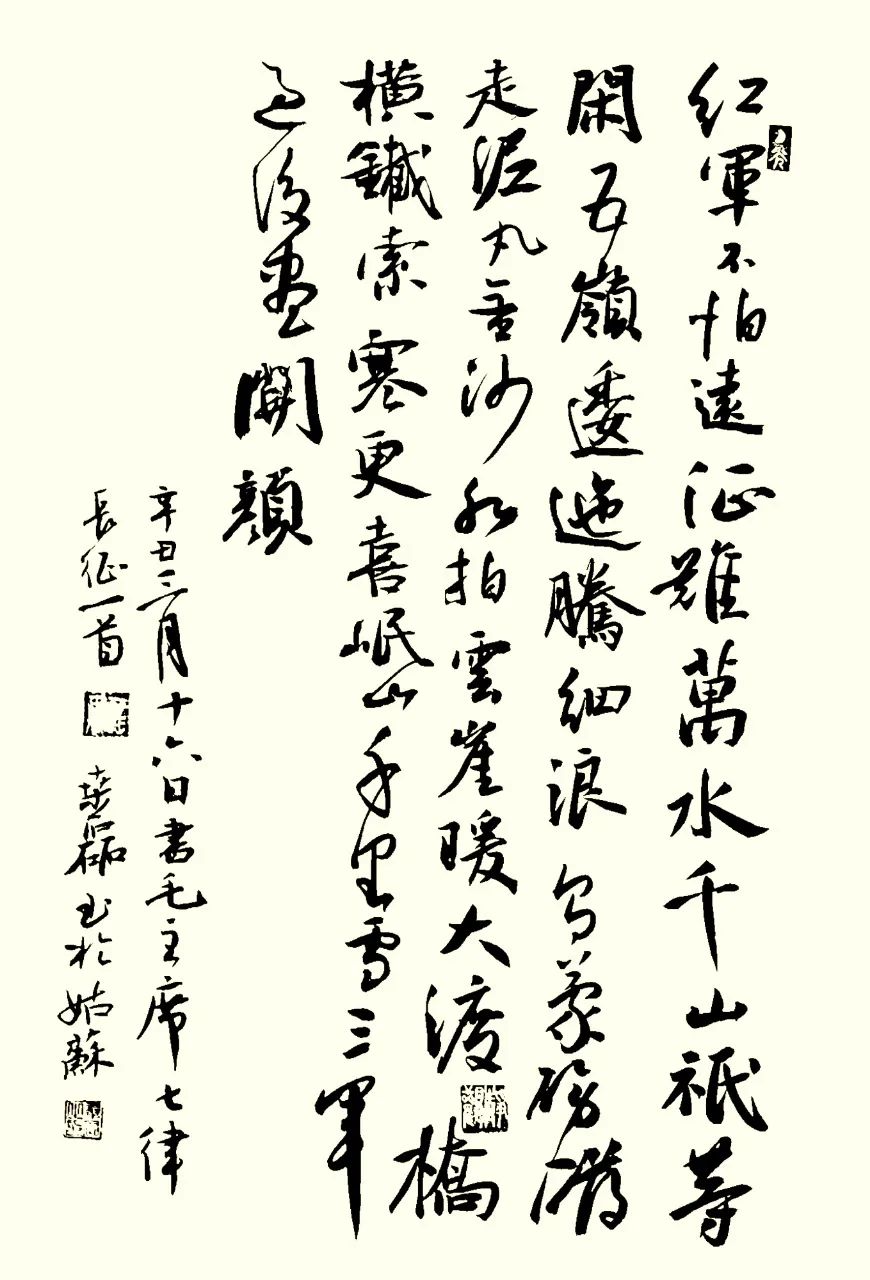 紅軍不怕遠征難萬水千山祇等
閑五嶺逶迤騰細浪烏蒙磅礴
走泥丸金沙水拍雲崖暖大渡橋
橫鐵索寒更喜岷山千里雪三軍
過後盡開顏
辛丑三月十六日書毛主席七律
長征一首 磊書於姑蘇